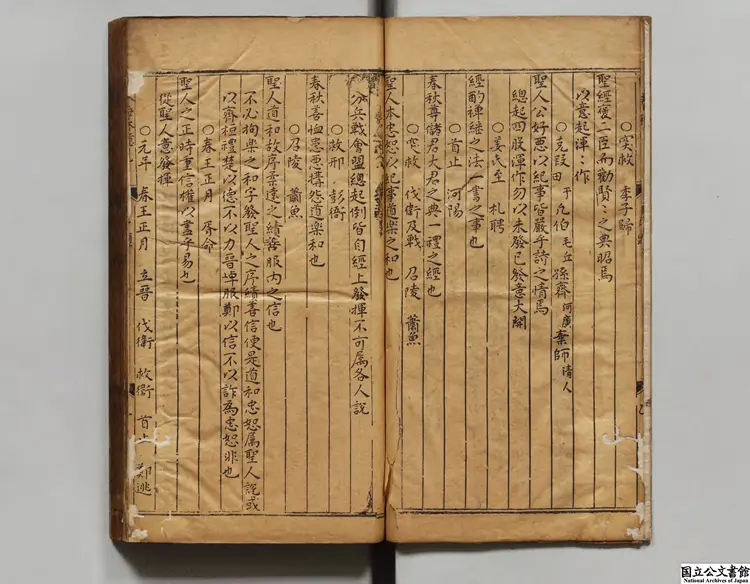 ○突救　季子歸
聖經愛二臣而勸賢〻之典昭焉
以意起渾〻作
○克段田 于凡伯毛丘 孫齊 何廣 棄師 清人
聖人公好惡以紀事皆嚴乎詩之情焉
總起四股渾作勿以未發已發意大關
○姜氏至　札聘
經酌禪繼之法一書之事也
○首止　河陽
春秋尊儲君大君之典一禮之經也
○突救　伐衛及戰　召陵　蕭魚
聖人本忠恕以紀事道樂之和也
分兵戰會盟總起倒皆自經上發揮不可屬各人說
○救邢　彭衙
春秋善恤患惡搆怨道樂和也
○召陵　蕭魚
聖人道和故序柔遠之績善服內之信也
不必拘樂之和字發聖人之序績善信便是道和忠恕屬聖人說或
以齊桓禮楚以德不以力晉悼服鄭以信不以詐為忠恕非也
○春王正月　胥命
聖人之正時重信權以盡乎易也
從聖人意發揮
○元年　春王正月　立晉　伐衛　救衛　首止　鄭逃
国立公文書館
National Archives of Japan